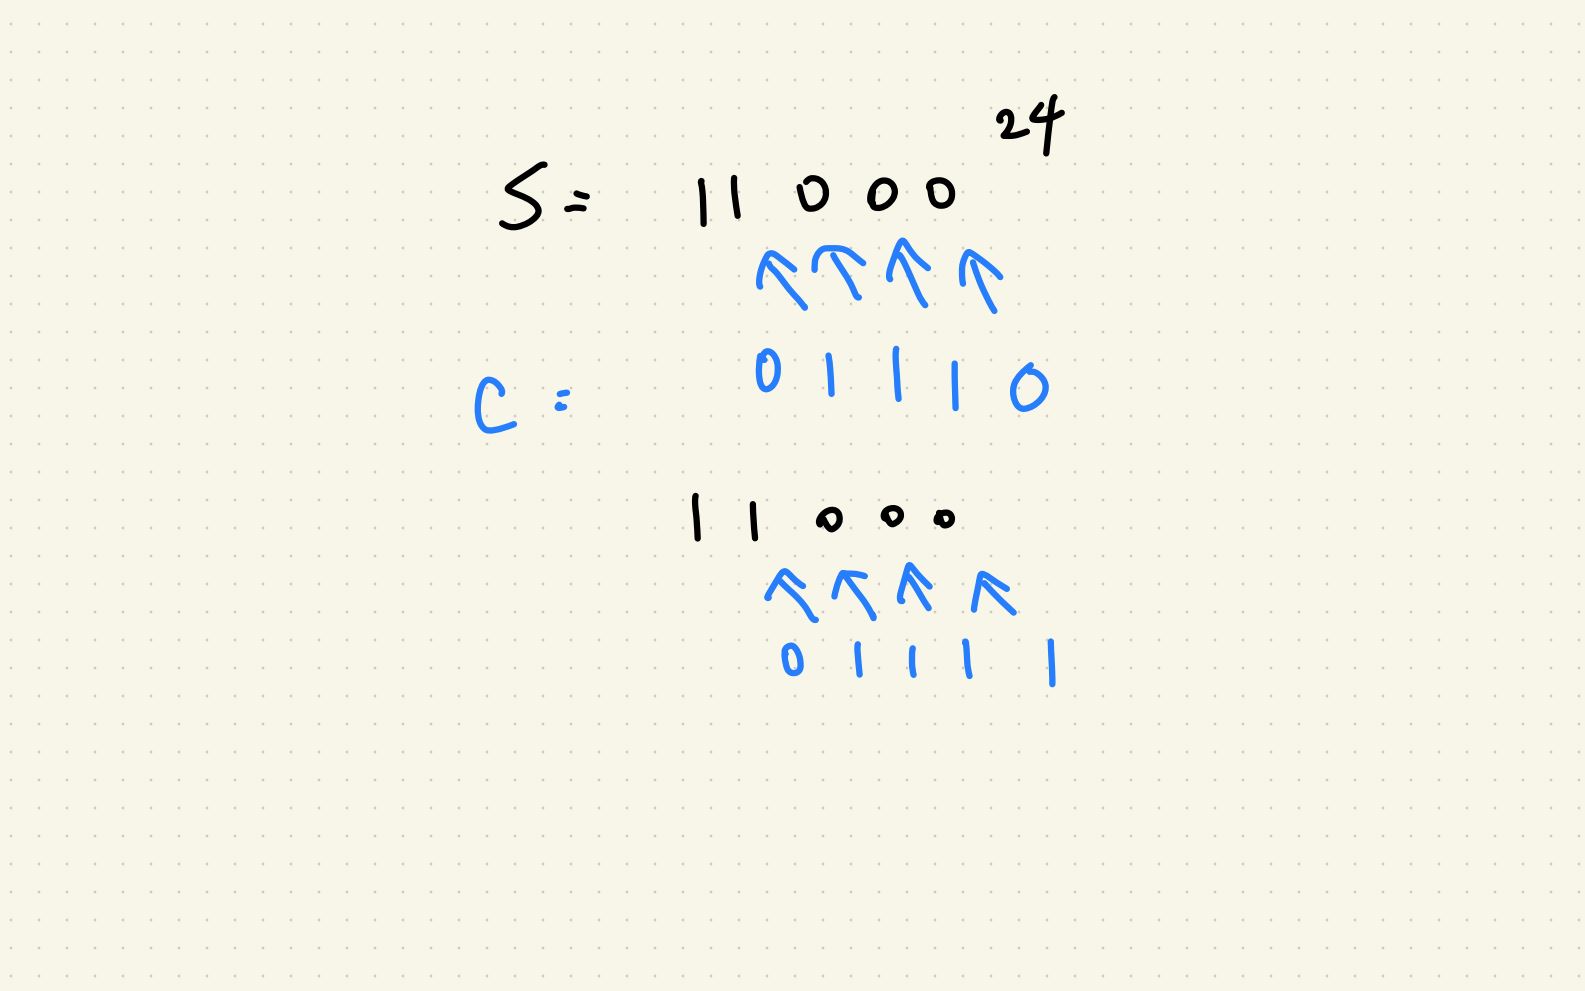 24
S = 11000
C = 01110
11000
01111